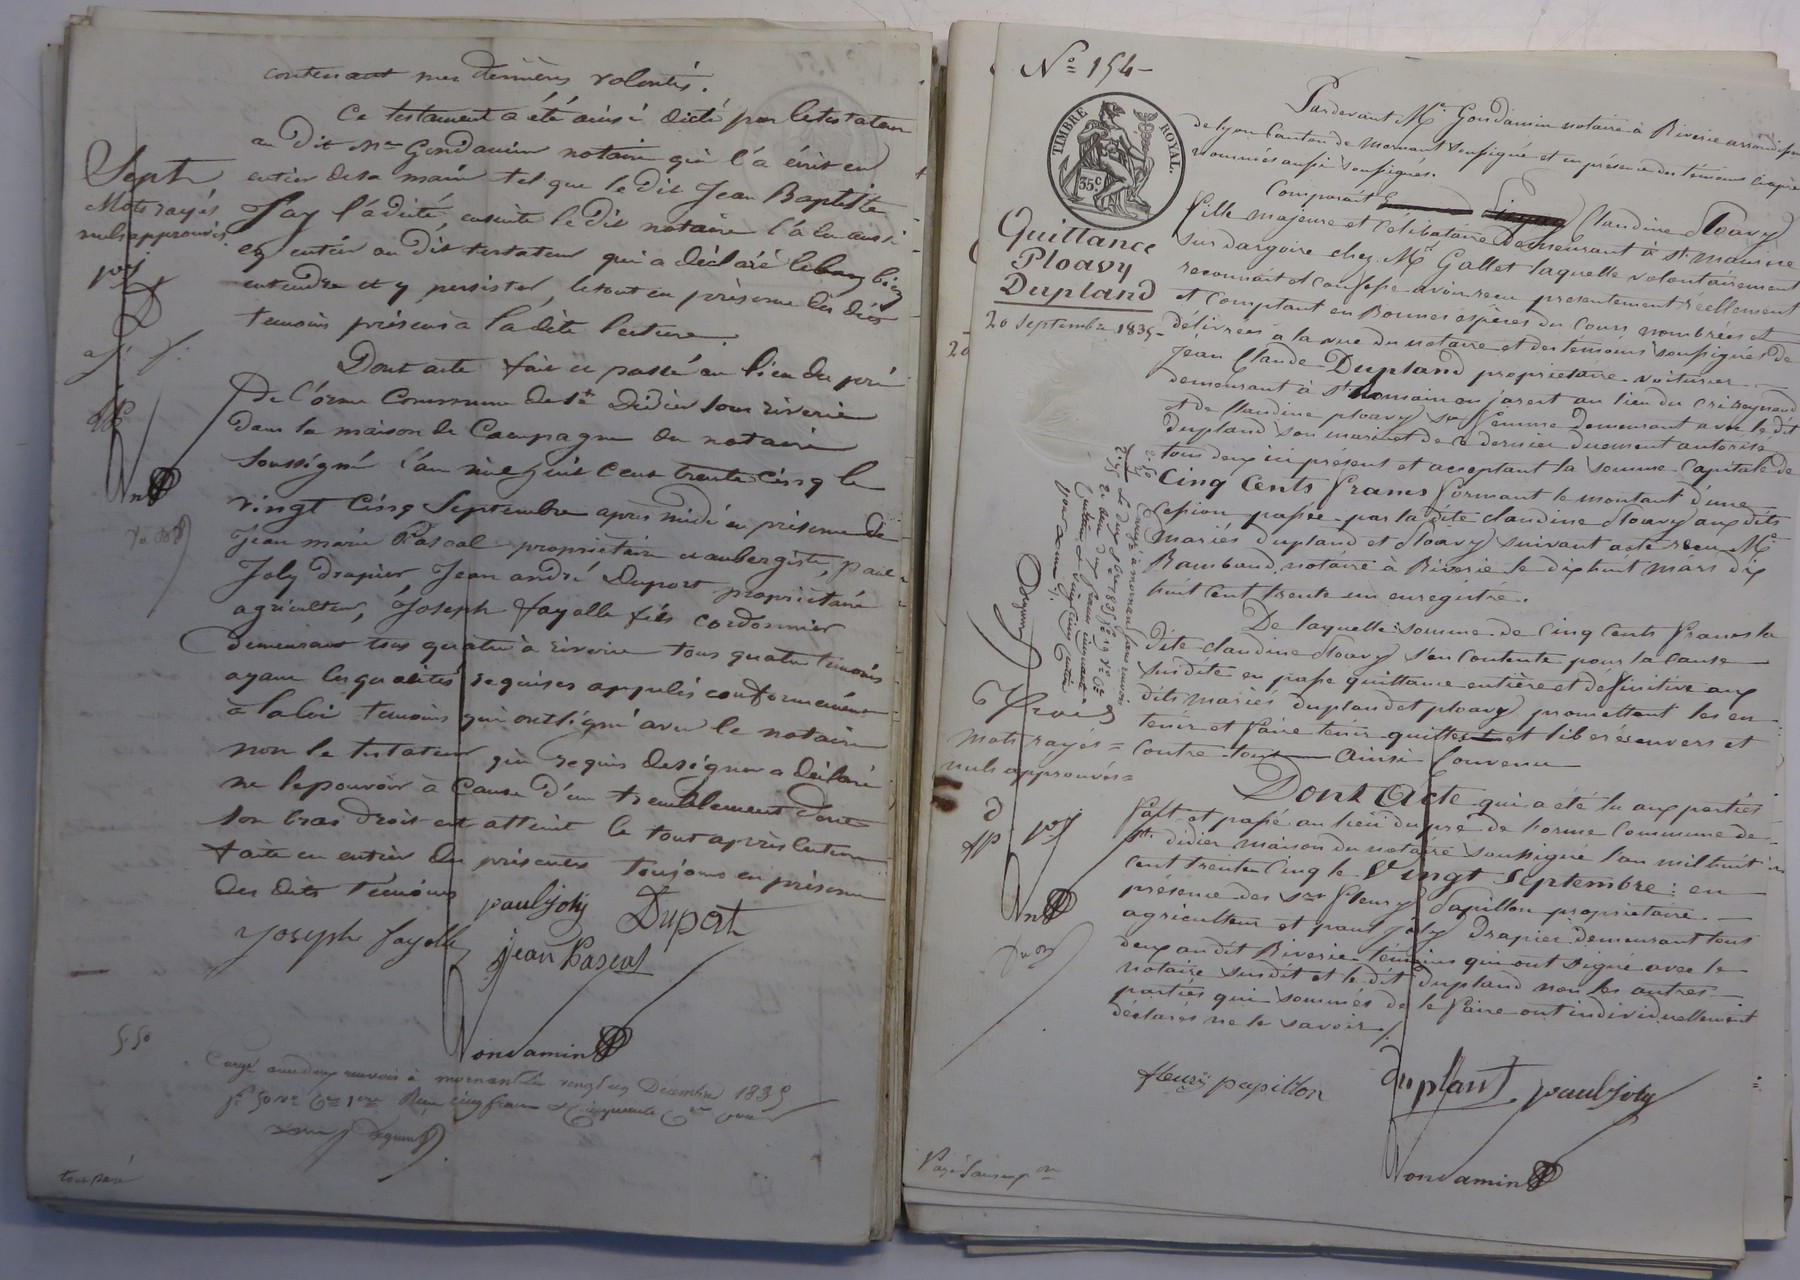 contenant mes dernières volontés.
Ce testament a été ainsi dicté par le testateur
au dit Me Gondamin notaire qui l'a écrit en
entier de sa main tel que le dit Jean Baptiste
Fay l'a dicté, ensuite le dit notaire l'a lu aussi
en entier au dit testateur qui a déclaré le bien
entendre et y persister, le tout en présence des dits
temoins présens à la dite lecture.
Dont acte fait et passé au lieu du pré
de l'orme Commune de St Didier sous riverie
dans la maison de Campagne du notaire
soussigné l'an mil huit Cent trente Cinq le
vingt Cinq Septembre après midi en présence de
Jean marie Pascal propriétaire et aubergiste, paul
Joly drapier, Jean andré Duport propriétaire
agriculteur, Joseph fayolle fils cordonnier
demeurant tous quatre à riverie tous quatre temoins
ayant les qualités requises appelés conformément
à la loi temoins qui ont signé avec le notaire
non le testateur qui requis de signer a déclaré
ne le pouvoir à Cause d'un tremblement dont
son bras droit est atteint le tout après lecture
faite en entier des présentes toujours en présence
des dits temoins
paul joly Duport
Joseph fayolle
jean Pascal
Gondamin
Sept
Mots rayés
nuls approuvés
pj
D
5.50
Enregé à mornant le vingt Décembre 1835
tout passé
No 154
TIMBRE ROYAL.
35c
Quittance
Ploavy
Dupland
20 Septembre 1835
Pardevant Me Gondamin notaire à Riverie arrondissem
de lyon Canton de Mornant Soussigné et en présence des témoins ci après
nommés aussi Soussignés.
Comparait Claudine Ploavy
fille majeure et Célibataire Demeurant à St maurice
sur dargoire chez Mr Gallet laquelle volontairement
reconnait et Confesse avoir reçu présentement réellement
et Comptant en Bonnes espèces du Cours nombrées et
délivrées à la vue du notaire et des temoins Soussignés de
Jean Claude Dupland propriétaire voiturier
demeurant à St Romain en jarest au lieu du
et de Claudine ploavy sa femme Demeurant avec le dit
Dupland son mari et de ce dernier duement autorisé
tous deux ici présent et acceptant la somme Capitale de
Cinq Cents francs formant le montant d'une
Cession passée par la dite claudine Ploavy aux dits
Mariés dupland et Ploavy suivant acte reçu Me
Rambaud notaire à Riverie le dix huit Mars dix
huit Cent trente un enregistré.
De laquelle somme de Cinq Cents francs la
dite claudine Ploavy s'en Contente pour la Cause
susdite en passe quittance entière et définitive aux
dits mariés dupland et ploavy promettant les en
tenir et faire tenir quittes et liberés envers et
Contre tout Ainsi Convenu
Dont Acte qui a été lu aux parties
fait et passé au lieu du pré de l'orme Commune de
St didier maison du notaire Soussigné l'an mil huit
Cent trente Cinq le Vingt Septembre : en
présence des srs fleury Papillon propriétaire
agriculteur et paul joly Drapier demeurant tous
deux au dit Riverie témoins qui ont signé avec le
notaire susdit et le dit Dupland non les autres
parties qui sommés de le faire ont individuellement
déclarés ne le savoir.
fleury papillon
duplant
paul joly
Gondamin
Trois
mots rayés
nuls approuvés
D
dp pj